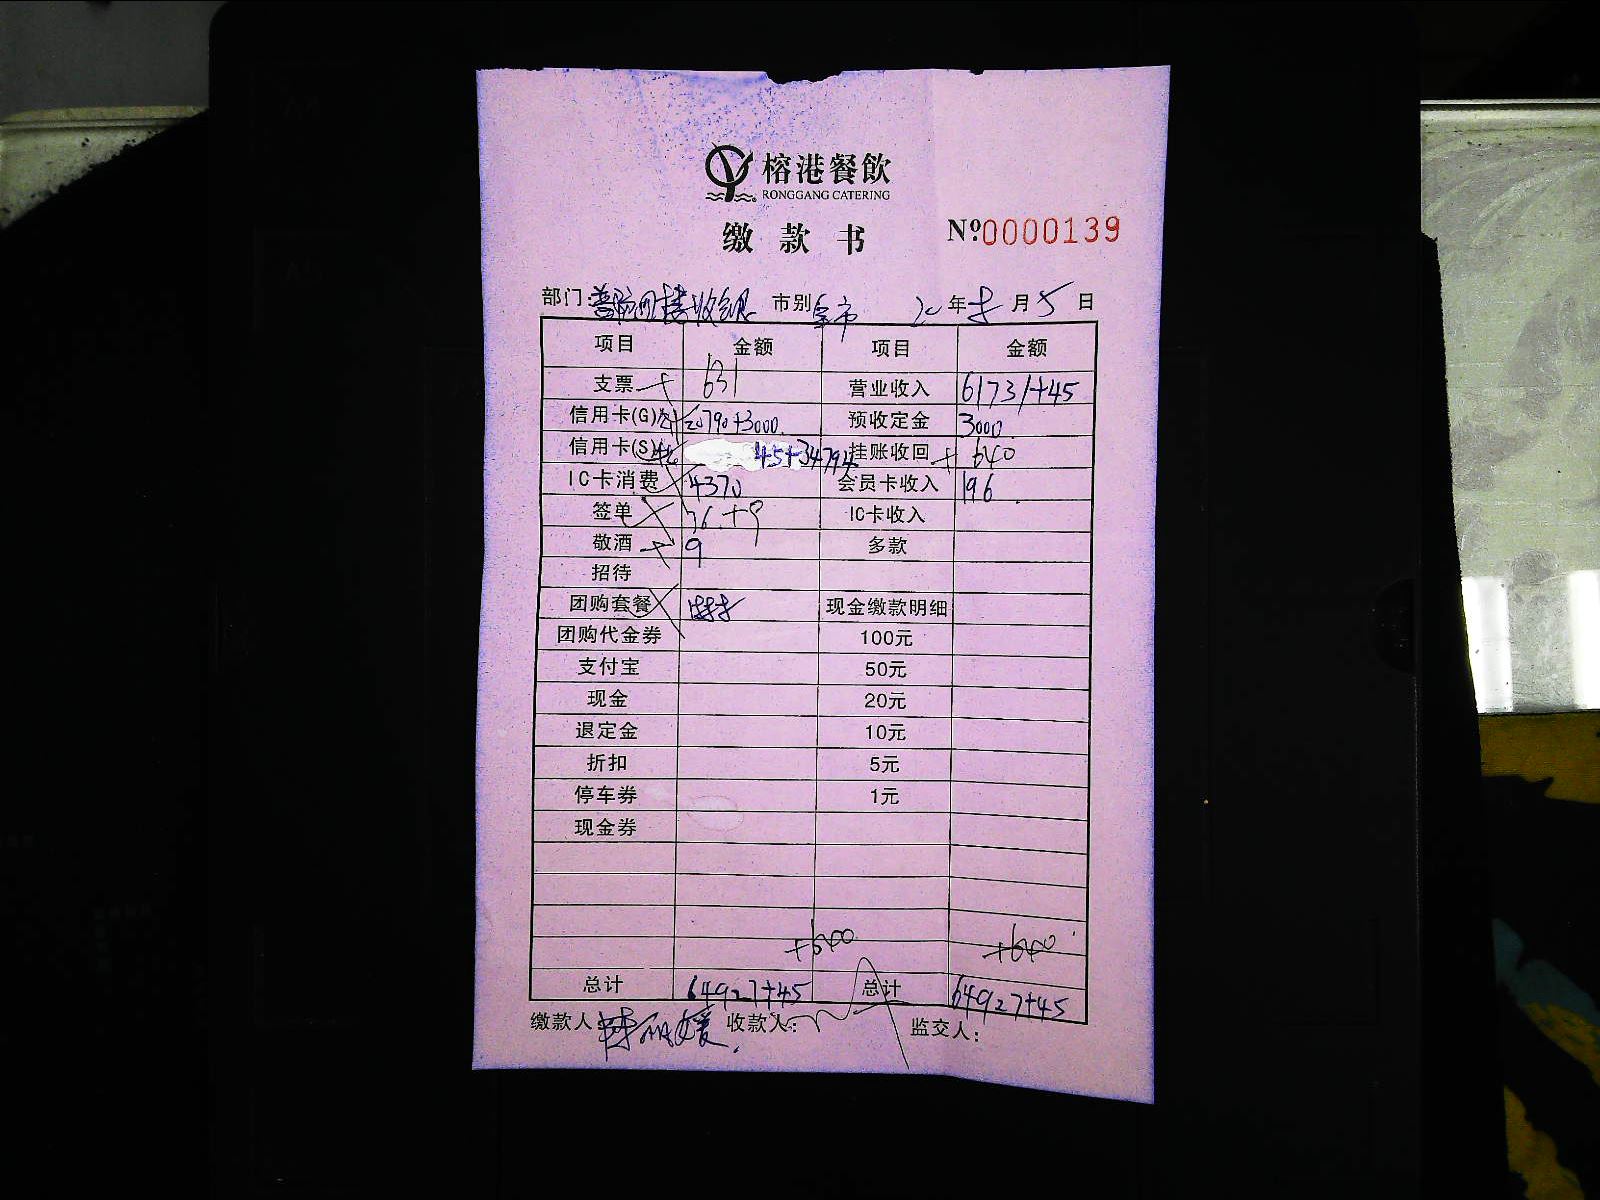 榕港餐飲
RONGGANG CATERING
缴款书 Nº0000139
部门: 收银 市别 年 月 5 日
项目 金额 项目 金额
支票 631 营业收入 61731+45
信用卡(G) 20790+3000 预收定金 3000
信用卡(S) 45+34794 挂账收回 + 640
IC卡消费 4370 会员卡收入 196
签单 IC卡收入
敬酒 9 多款
招待
团购套餐 现金缴款明细
团购代金券 100元
支付宝 50元
现金 20元
退定金 10元
折扣 5元
停车券 1元
现金券
+640 +640
总计 64927+45 总计 64927+45
缴款人 收款人: 监交人: